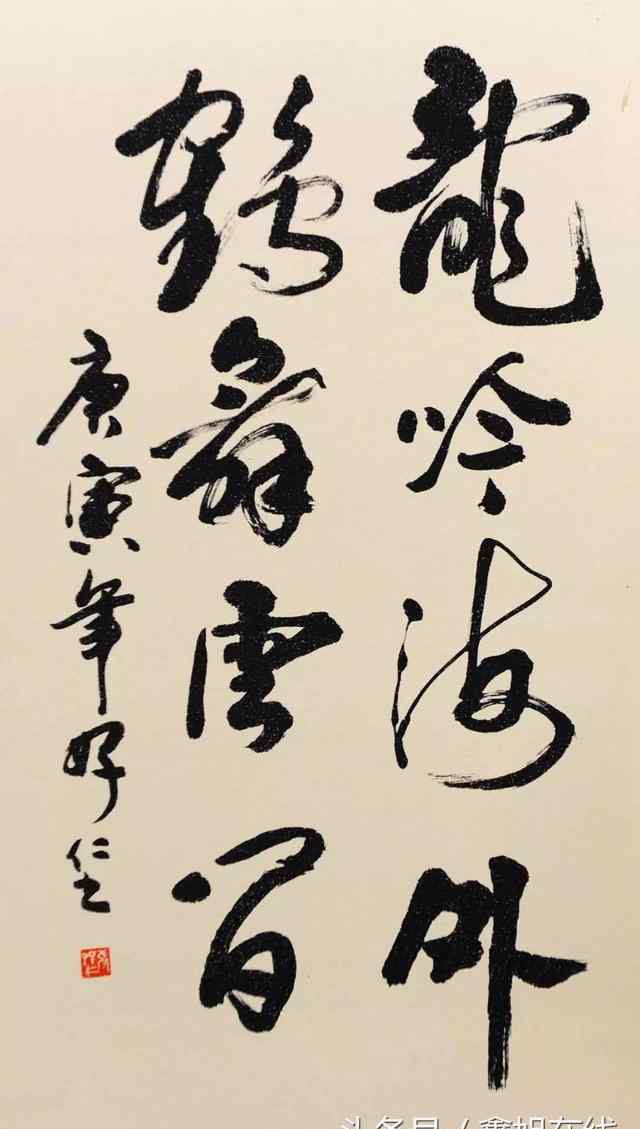 龍吟海外
鶴舞雲間
庚寅年好仁
头条号 / 鑫旭在线